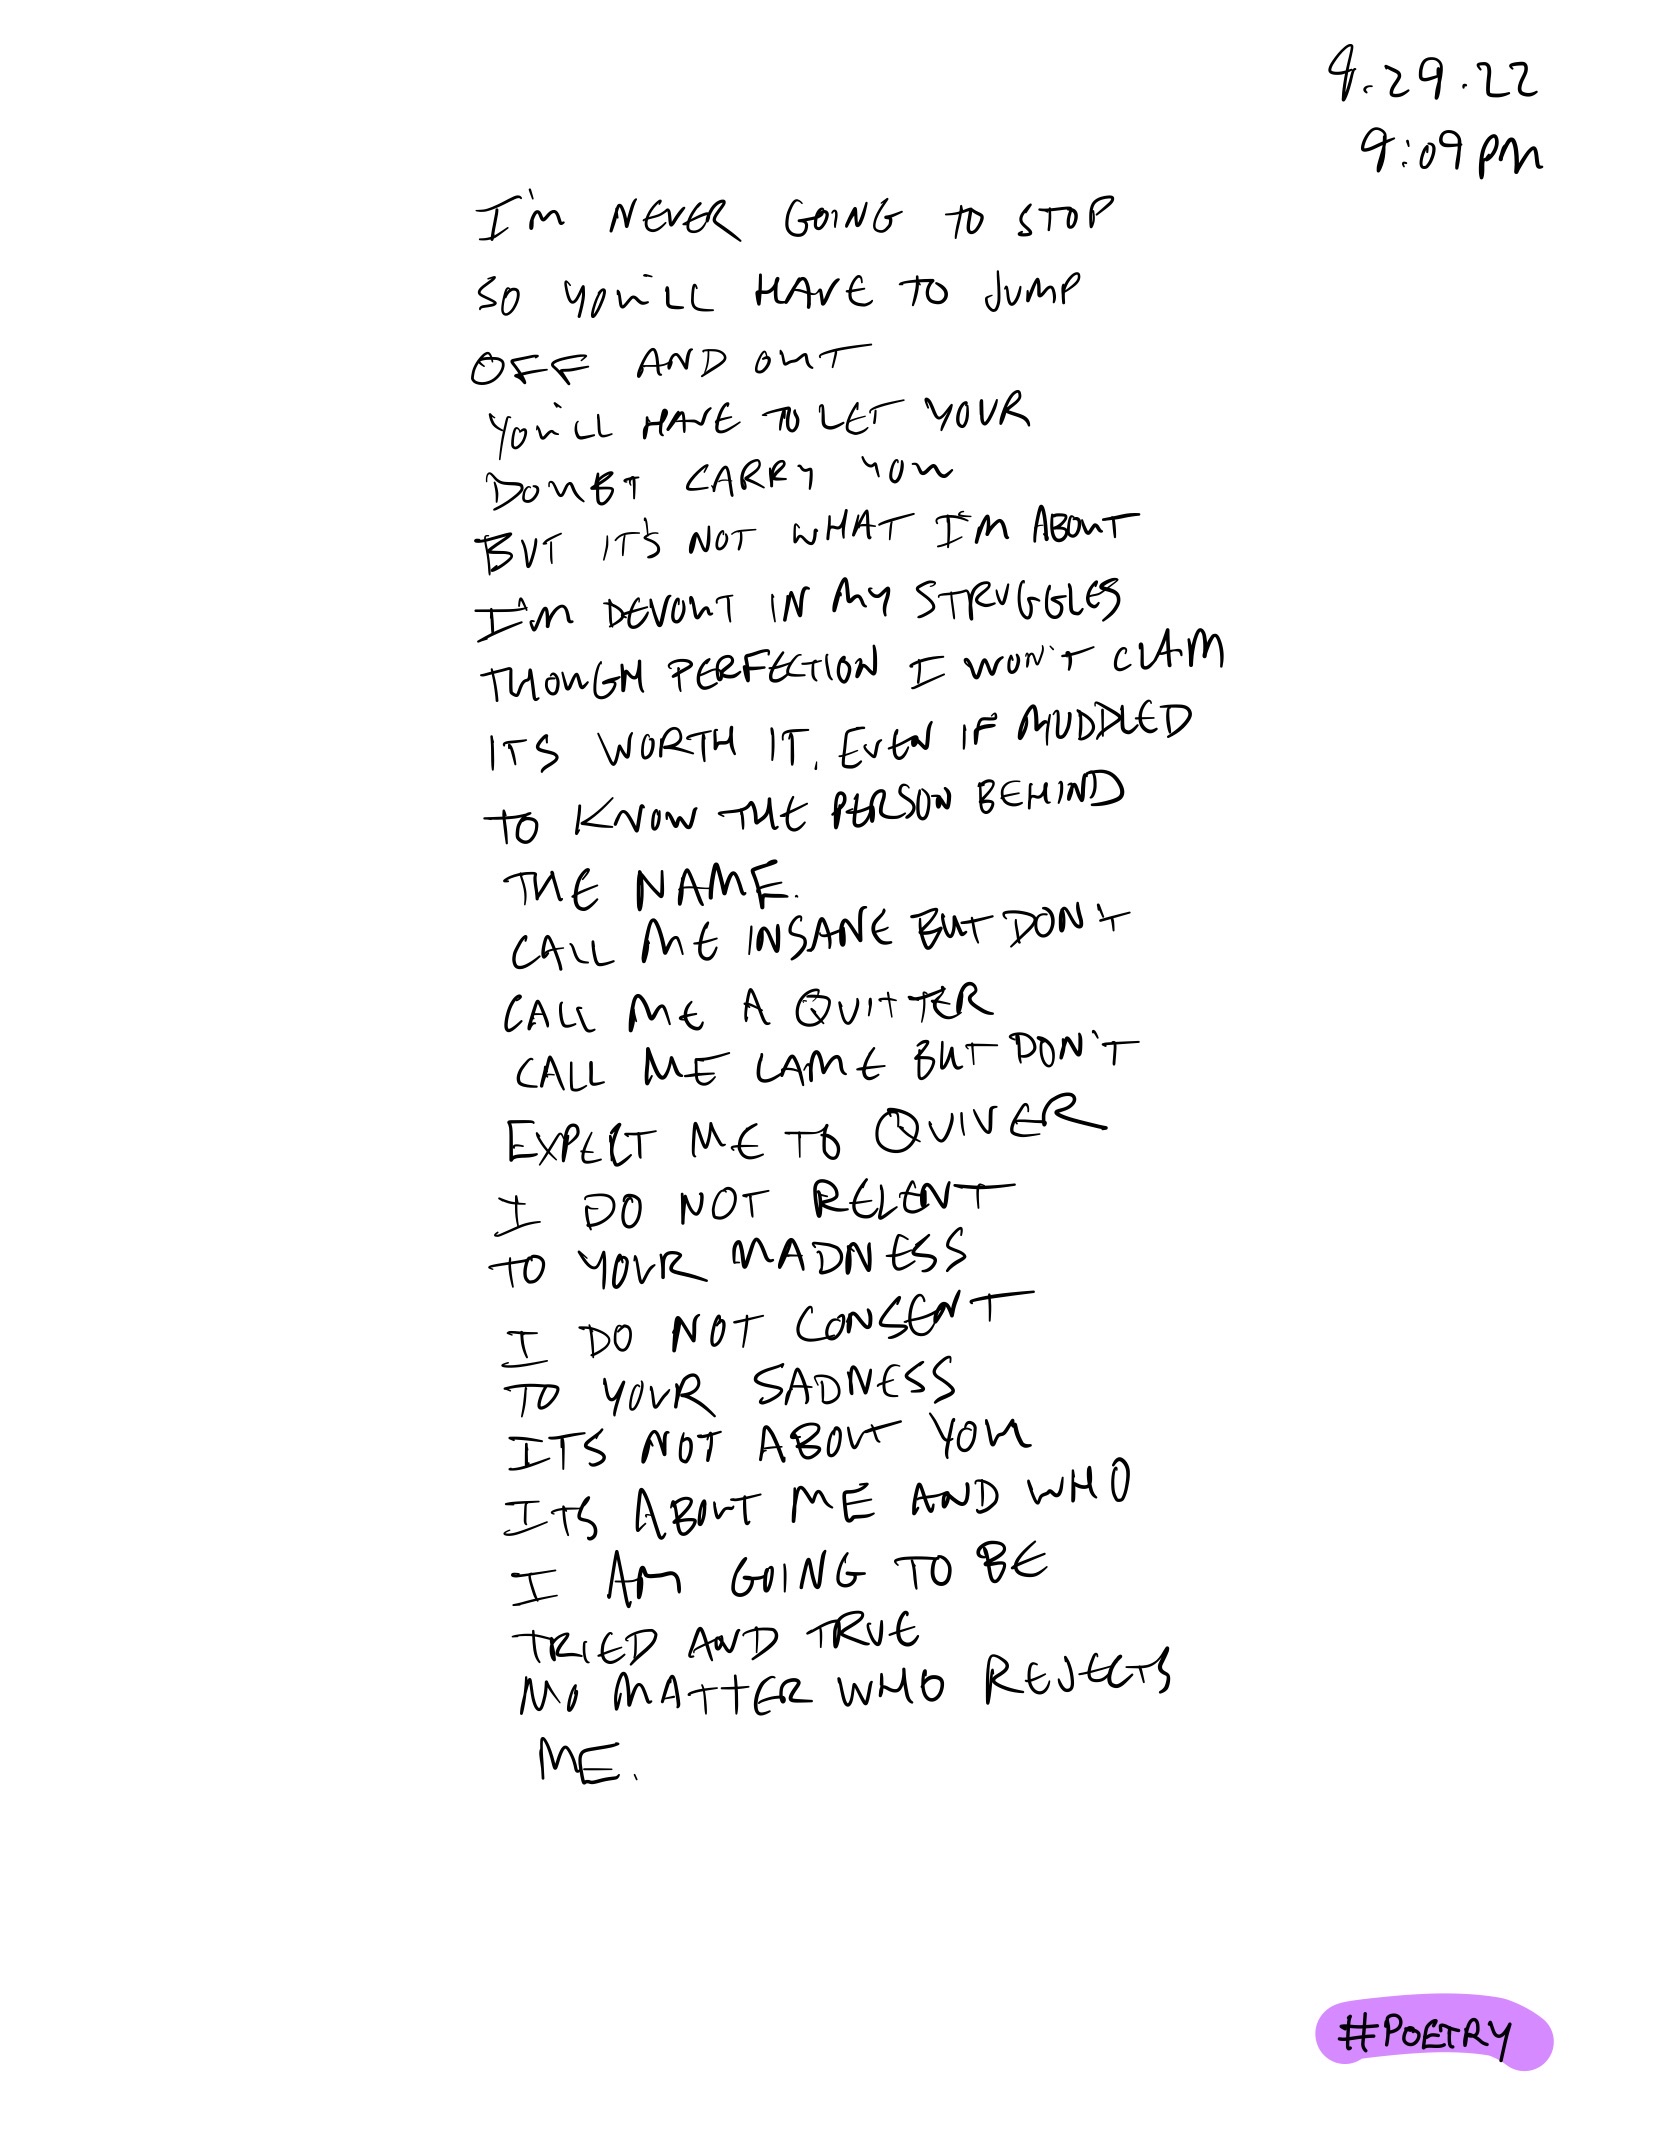 4.29.22
9:09PM
I'M NEVER GOING TO STOP
SO YOU'LL HAVE TO JUMP
OFF AND OUT
YOU'LL HAVE TO LET YOUR
DOUBT CARRY YOU
BUT IT'S NOT WHAT I'M ABOUT
I'M DEVOUT IN MY STRUGGLES
THOUGH PERFECTION I WON'T CLAM
ITS WORTH IT, EVEN IF MUDDLED
TO KNOW THE PERSON BEHIND
THE NAME.
CALL ME INSANE BUT DON'T
CALL ME A QUITTER
CALL ME LAME BUT DON'T
EXPECT ME TO QUIVER
I DO NOT RELENT
TO YOUR MADNESS
I DO NOT CONSENT
TO YOUR SADNESS
ITS NOT ABOUT YOU
ITS ABOUT ME AND WHO
I AM GOING TO BE
TRIED AND TRUE
NO MATTER WHO REJECTS
ME.
#POETRY